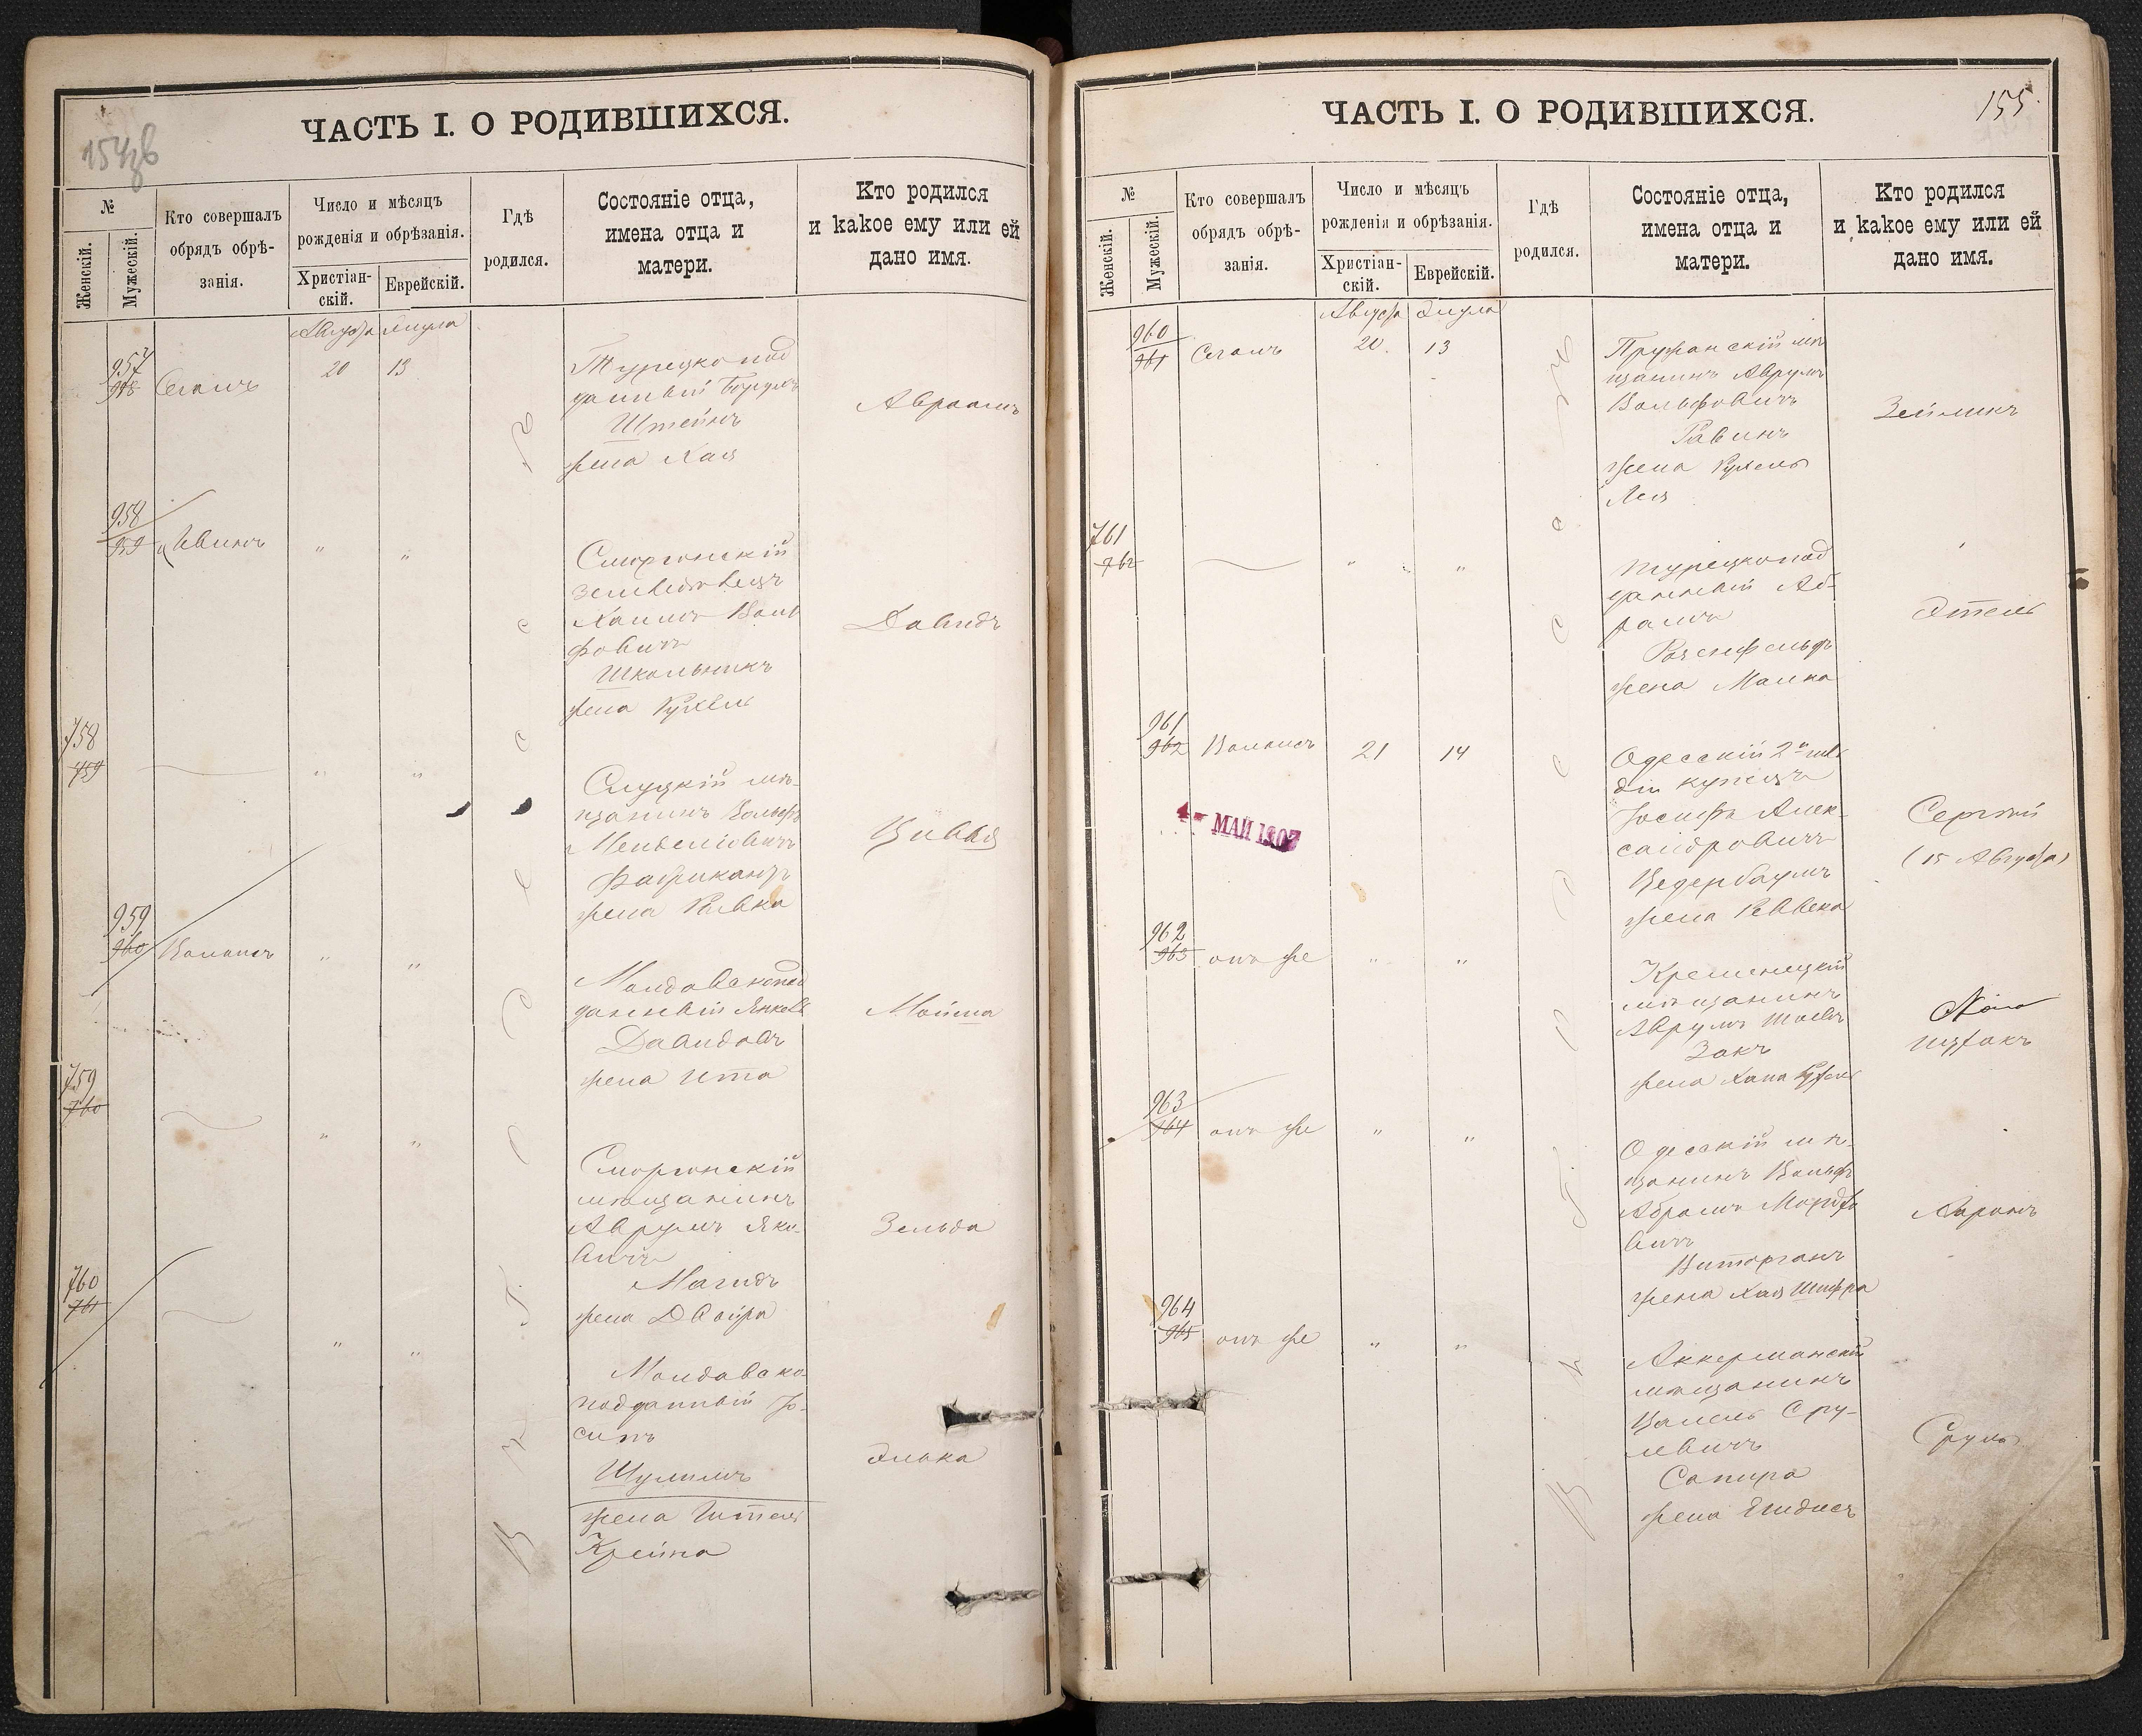 ЧАСТЬ I. О РОДИВШИХСЯ.
№
Женскій.
Мужескій.
Кто совершалъ
обрядъ обрѣ-
занія.
Число и мѣсяцъ
рожденія и обрѣзанія.
Христіан-
скій.
Еврейскій.
Гдѣ
родился.
Состояніе отца,
имена отца и
матери.
Кто родился
и какое ему или ей
дано имя.
Августа
957
Сегалъ
20
13
Турецкопод
данный
Штейнъ
жена Хая
Авраамъ
958
959
Ивинъ
"
"
Сморгонскій
земледѣлецъ
Хаимъ Воль
фовичъ
Школьникъ
жена Рухель
Давидъ
758
759
"
"
Слуцкій мѣ-
щанинъ Вольфъ
Менделіовичъ
Фабрикантъ
жена Ривка
Цивья
959
960
"
"
Молдавскопод
данный Янкель
Давидовъ
жена Ита
Мойша
759
760
"
"
Сморгонскій
мѣщанинъ
Аврумъ Янке-
вичъ
Магидъ
жена Двойра
Зельда
760
761
"
"
Молдавско-
подданный Іо-
сипъ
Шулимъ
жена
Крейна
Элька
ЧАСТЬ I. О РОДИВШИХСЯ.
155.
№
Женскій.
Мужескій.
Кто совершалъ
обрядъ обрѣ-
занія.
Число и мѣсяцъ
рожденія и обрѣзанія.
Христіан-
скій.
Еврейскій.
Гдѣ
родился.
Состояніе отца,
имена отца и
матери.
Кто родился
и какое ему или ей
дано имя.
Августа Элула
960
961
Сегалъ
20.
13
Пружанскій мѣ
щанинъ Аврумъ
Вольфовичъ
Рабинъ
жена Рухель
Лея
Зейликъ
761
762
"
"
Турецкопод
данный Аб-
рамъ
Розенфельдъ
жена Малка
Этель
961
962
21
14
Одесскій 2й гиль
діи купецъ
Іосифъ Алек-
сандровичъ
Цедербаумъ
жена Реввека
Сергѣй
(15 Августа)
4 - МАЙ 1907
962
963
онъ же
"
"
Кременецкій
мѣщанинъ
Аврумъ
Закъ
жена Хана Рухель
Ицхокъ
963
964
онъ же
"
"
Одесскій мѣ-
щанинъ Вольфъ
Абрамъ Мордко
вичъ
Виторганъ
жена Хая Шифра
Ааронъ
964
965
онъ же
"
"
Аккерманскій
мѣщанинъ
Сру-
левичъ
Сапира
жена
Сруль